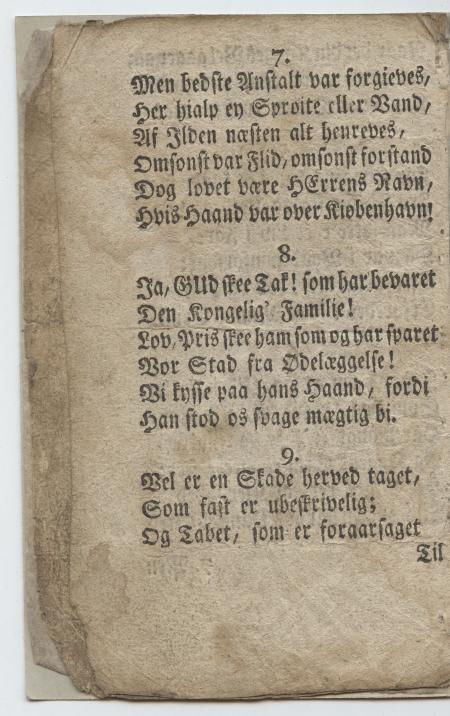 7.
Men bedste Anstalt var forgieves,
Her hialp ey Sprøite eller Vand,
Af Ilden næsten alt henreves,
Omsonst var Flid, omsonst forstand
Dog lovet være HErrens Navn,
Hvis Haand var over Kiøbenhavn!
8.
Ja, GUd skee Tak! som har bevaret
Den Kongelig' Familie!
Lov, Pris skee ham som og har sparet
Vor Stad fra Ødelæggelse!
Vi kysse paa hans Haand, fordi
Han stod os svage mægtig bi.
9.
Vel er en Skade herved taget,
Som fast er ubeskrivelig;
Og Tabet, som er foraarsaget
Til